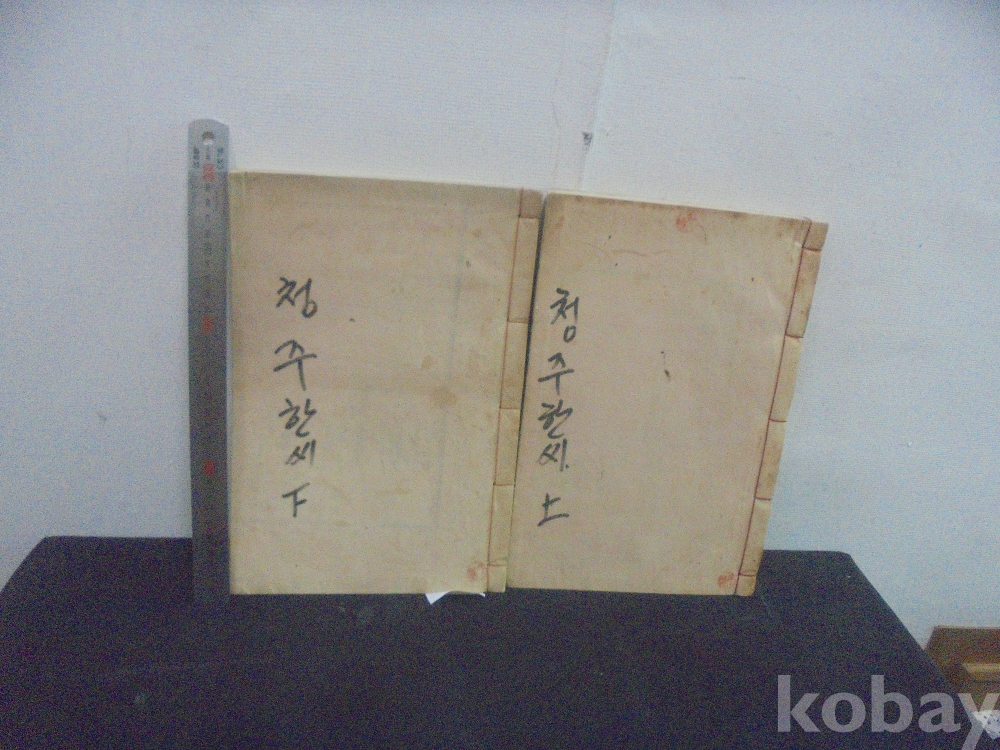 청주한씨 下
청주한씨. 上
kobay